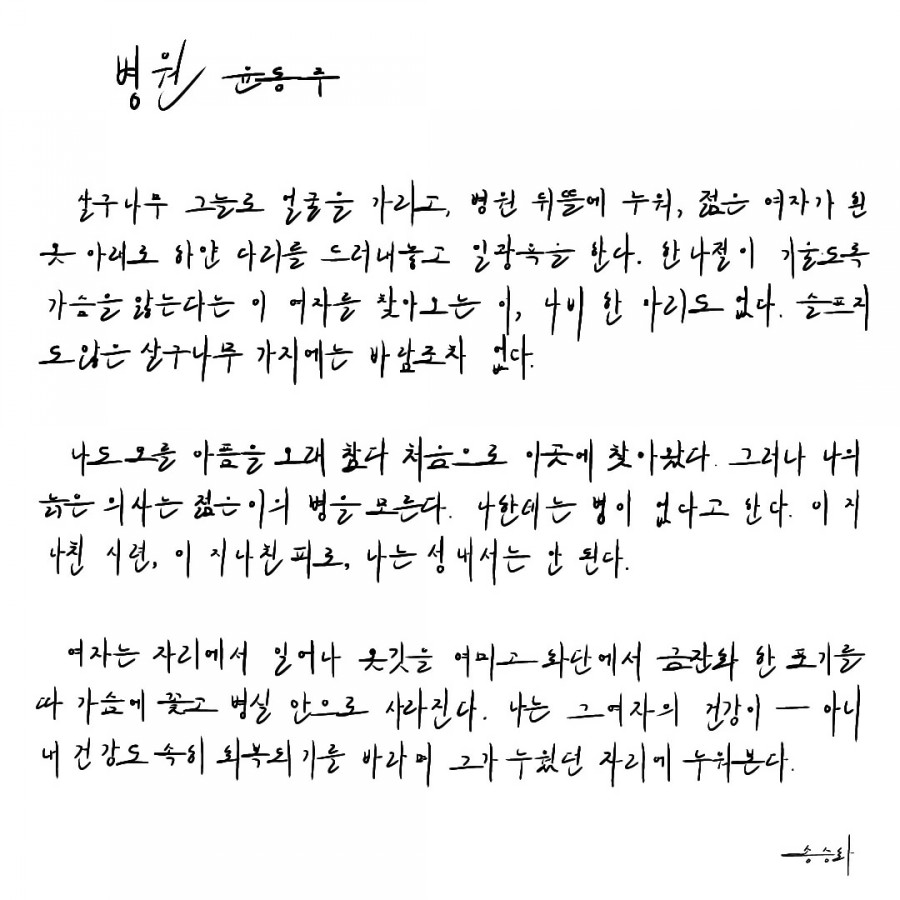 병원 윤동주
살구나무 그늘로 얼굴을 가리고, 병원 뒤뜰에 누워, 젊은 여자가 흰
옷 아래로 하얀 다리를 드러내놓고 일광욕을 한다. 한나절이 기울도록
가슴을 앓는다는 이 여자를 찾아오는 이, 나비 한 마리도 없다. 슬프지
도 않은 살구나무 가지에는 바람조차 없다.
나도 모를 아픔을 오래 참다 처음으로 이곳에 찾아왔다. 그러나 나의
늙은 의사는 젊은이의 병을 모른다. 나한테는 병이 없다고 한다. 이 지
나친 시련, 이 지나친 피로, 나는 성내서는 안 된다.
여자는 자리에서 일어나 옷깃을 여미고 화단에서 금잔화 한 포기를
따 가슴에 꽂고 병실 안으로 사라진다. 나는 그 여자의 건강이 — 아니
내 건강도 속히 회복되기를 바라며 그가 누웠던 자리에 누워본다.
송승화